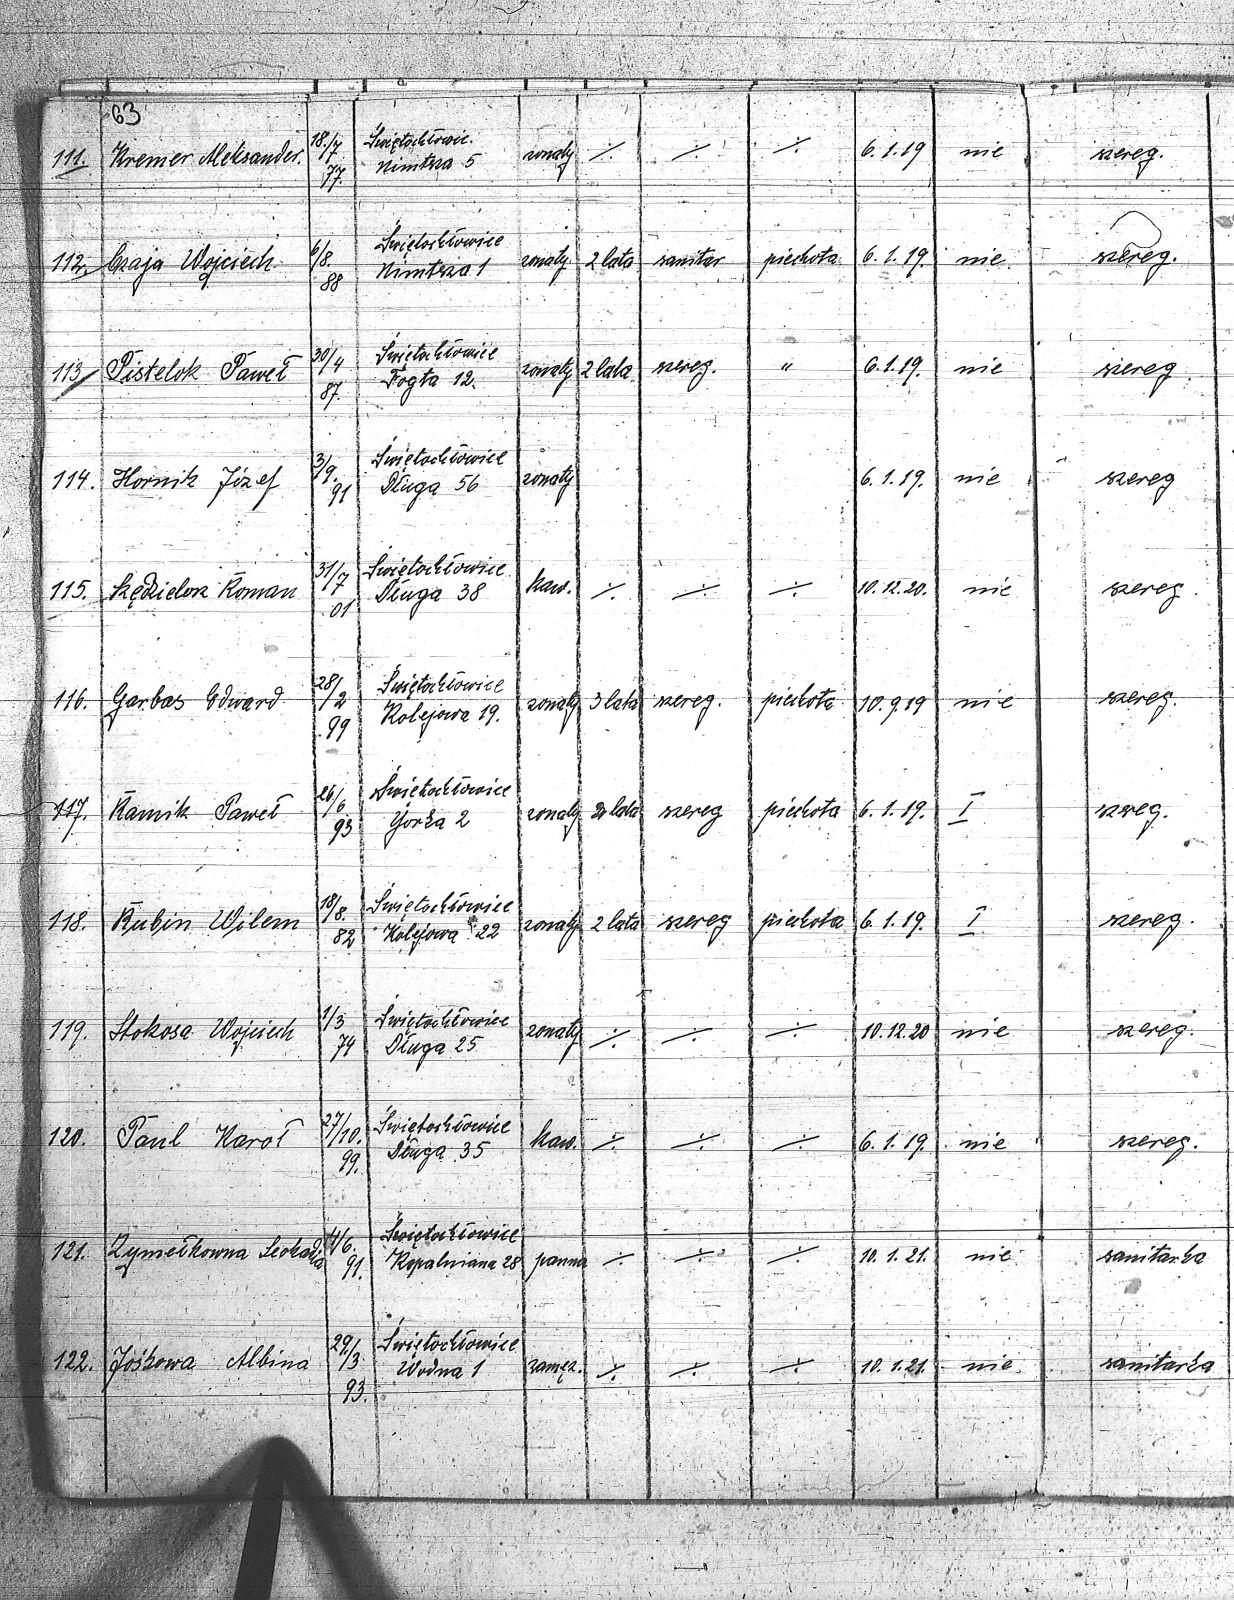 63
111. Kremer Aleksander 18./7 77. Świętochłowic. Nimtsza 5 żonaty ./. ./. ./. 6.1.19 nie szereg.
112. Czaja Wojciech 6/8. 88 Świętochłowice Nimtsza 1 żonaty 2 lata sanitar piechota 6.1.19. nie szereg.
113. Pistelok Paweł 30/4 87. Świętochłowice Fogta 12. żonaty 2 lata szereg. " 6.1.19. nie szereg
114. Hornik Józef 3/9. 91 Świętochłowice Długa 56 żonaty 6.1.19. nie szereg
115. Roman 31/7 01 Świętochłowice Długa 38 kaw. ./. ./. ./. 10.12.20. nie szereg.
116. Garbas Edward 28/2 99 Świętochłowice Kolejowa 19. żonaty 3 lata szereg. piechota 10.9.19 nie szereg.
117. Kamik Paweł 26/6 93 Świętochłowice 2 żonaty lata szereg piechota 6.1.19. I szereg.
118. Rubin Wilem 18/8. 82 Świętochłowice Kolejowa 22 żonaty 2 lata szereg piechota 6.1.19. I szereg.
119. Stokosa Wojciech 1/3 74 Świętochłowice Długa 25 żonaty ./. ./. ./. 10.12.20 nie szereg.
120. Paul Karol 27/10. 99. Świętochłowice Długa 35 kaw. ./. ./. ./. 6.1.19. nie szereg.
121. Zymełkowna Leokadja 14/6. 91. Świętochłowice Kopalniana 28 panna ./. ./. ./. 10.1.21. nie sanitarka
122. Jośkowa Albina 29/3 93. Świętochłowice Wodna 1 zamęż. ./. ./. ./. 10.1.21. nie sanitarka